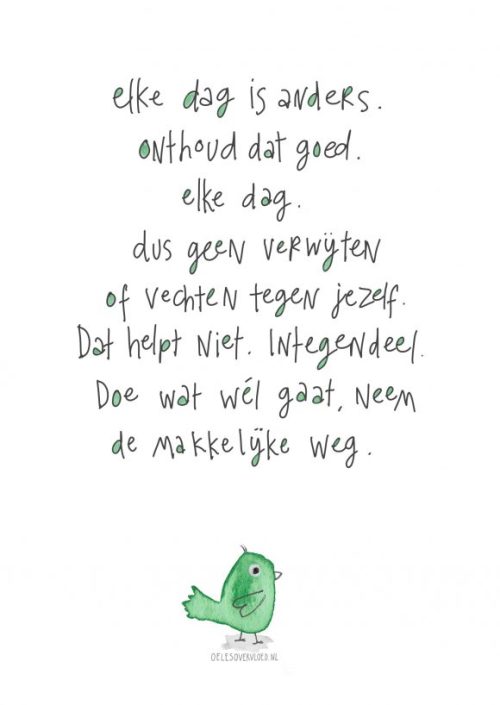 elke dag is anders.
onthoud dat goed.
elke dag.
dus geen verwijten
of vechten tegen jezelf.
Dat helpt niet. Integendeel.
Doe wat wél gaat, neem
de makkelijke weg.
OELESOVERVLOED.NL